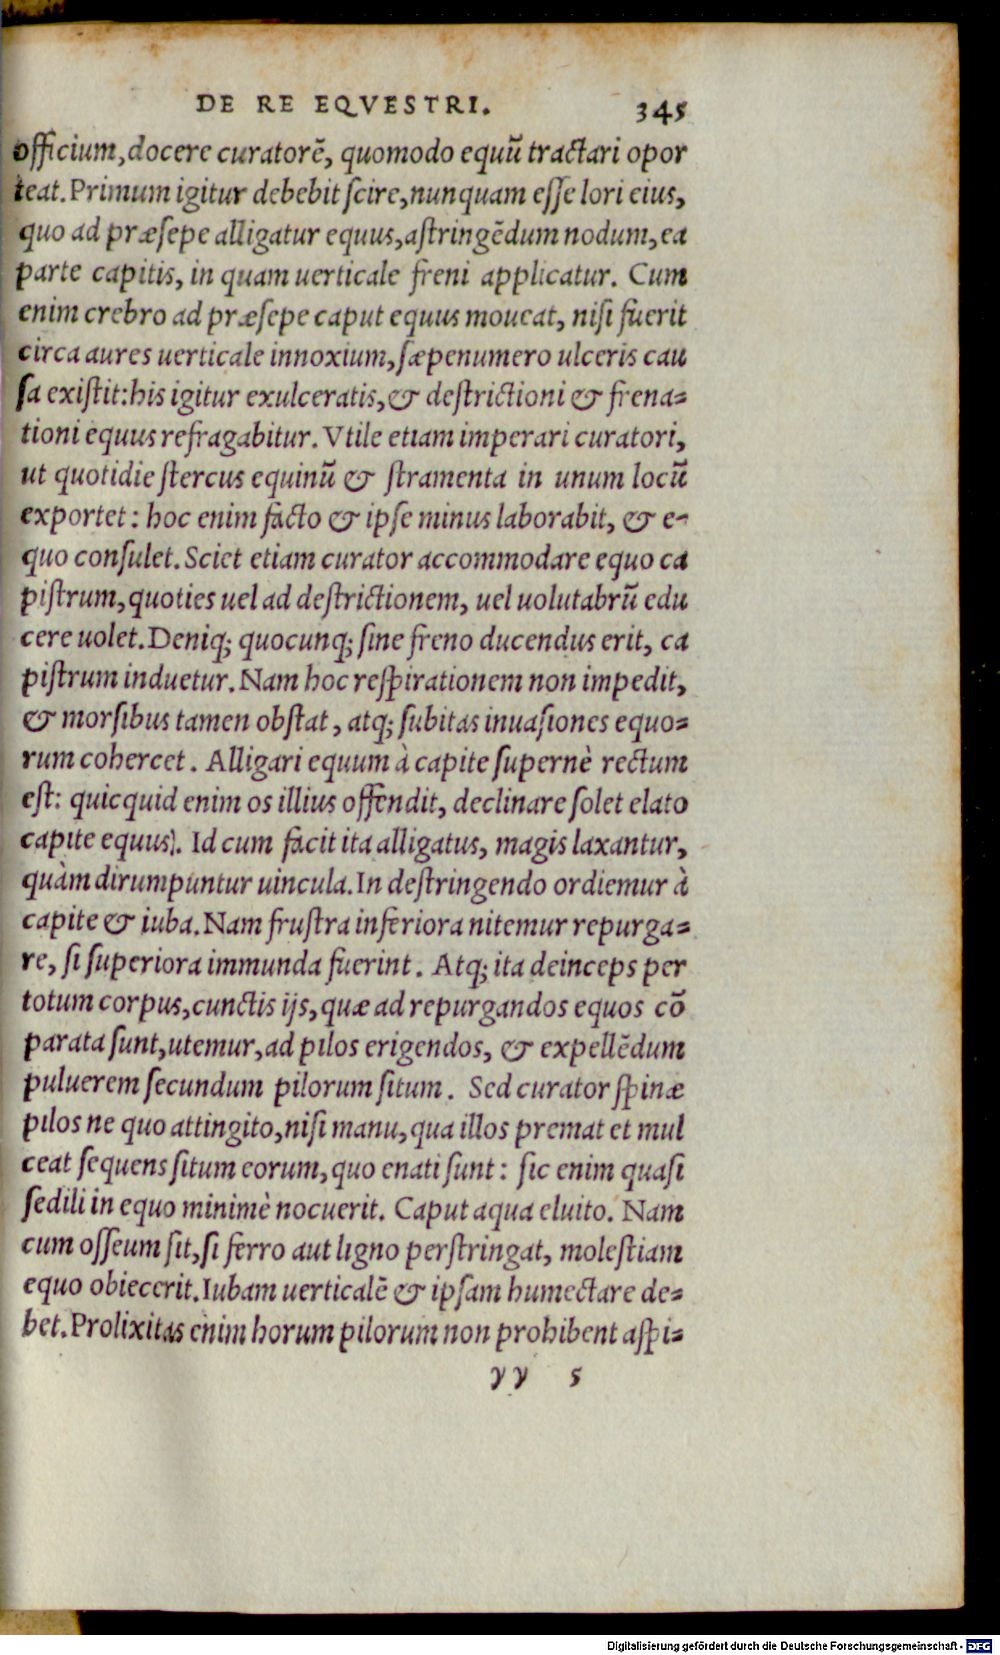 DE RE EQVESTRI. 345
officium, docere curatorē, quomodo equū tractari opor
teat. Primum igitur debebit ſcire, nunquam eſſe lori eius,
quo ad præſepe alligatur equus, aſtringēdum nodum, ea
parte capitis, in quam uerticale freni applicatur. Cum
enim crebro ad præſepe caput equus moueat, niſi fuerit
circa aures uerticale innoxium, ſæpenumero ulceris cau
ſa exiſtit: his igitur exulceratis, & deſtrictioni & frena-
tioni equus refragabitur. Vtile etiam imperari curatori,
ut quotidie ſtercus equinū & ſtramenta in unum locū
exportet: hoc enim facto & ipſe minus laborabit, & e-
quo conſulet. Sciet etiam curator accommodare equo ca
piſtrum, quoties uel ad deſtrictionem, uel uolutabrū edu
cere uolet. Deniq; quocunq; ſine freno ducendus erit, ca
piſtrum induetur. Nam hoc reſpirationem non impedit,
& morſibus tamen obſtat, atq; ſubitas inuaſiones equo-
rum cohercet. Alligari equum à capite ſupernè rectum
eſt: quicquid enim os illius offendit, declinare ſolet elato
capite equus). Id cum facit ita alligatus, magis laxantur,
quàm dirumpuntur uincula. In deſtringendo ordiemur à
capite & iuba. Nam fruſtra inferiora nitemur repurga-
re, ſi ſuperiora immunda fuerint. Atq; ita deinceps per
totum corpus, cunctis ijs, quæ ad repurgandos equos cō
parata ſunt, utemur, ad pilos erigendos, & expellēdum
puluerem ſecundum pilorum ſitum. Sed curator ſpinæ
pilos ne quo attingito, niſi manu, qua illos premat et mul
ceat ſequens ſitum eorum, quo enati ſunt: ſic enim quaſi
ſedili in equo minimè nocuerit. Caput aqua eluito. Nam
cum oſſeum ſit, ſi ferro aut ligno perſtringat, moleſtiam
equo obiecerit. Iubam uerticalē & ipſam humectare de-
bet. Prolixitas enim horum pilorum non prohibent aſpi-
yy 5
Digitalisierung gefördert durch die Deutsche Forschungsgemeinschaft - DFG